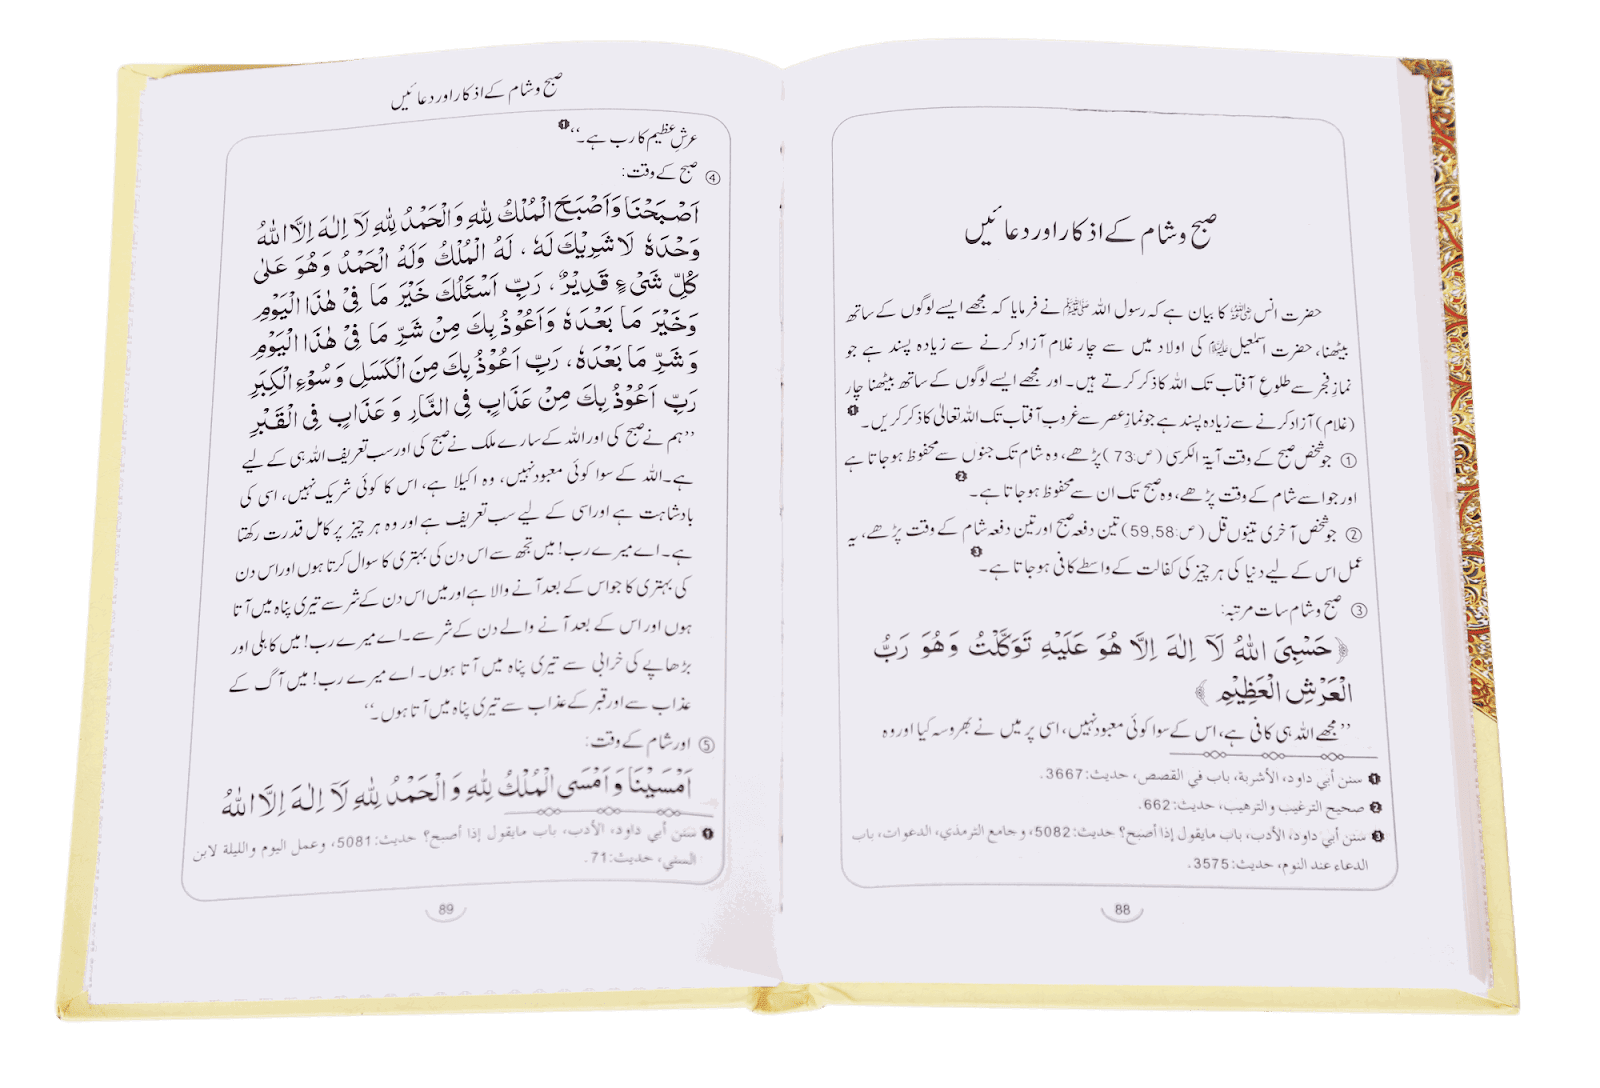 صبح و شام کے اذکار اور دعائیں
حضرت انس رضی اللہ عنہ کا بیان ہے کہ رسول اللہ ﷺ نے فرمایا کہ مجھے ایسے لوگوں کے ساتھ
بیٹھنا، حضرت اسمٰعیل علیہ السلام کی اولاد میں سے چار غلام آزاد کرنے سے زیادہ پسند ہے جو
نمازِ فجر سے طلوعِ آفتاب تک اللہ کا ذکر کرتے ہیں۔ اور مجھے ایسے لوگوں کے ساتھ بیٹھنا چار
(غلام) آزاد کرنے سے زیادہ پسند ہے جو نمازِ عصر سے غروب آفتاب تک اللہ تعالیٰ کا ذکر کریں۔ ❶
① جو شخص صبح کے وقت آیۃ الکرسی (ص:73) پڑھے، وہ شام تک جنوں سے محفوظ ہو جاتا ہے
اور جو اسے شام کے وقت پڑھے، وہ صبح تک ان سے محفوظ ہو جاتا ہے۔ ❷
② جو شخص آخری تینوں قل (ص:59,58) تین دفعہ صبح اور تین دفعہ شام کے وقت پڑھے، یہ
عمل اس کے لیے دنیا کی ہر چیز کی کفالت کے واسطے کافی ہو جاتا ہے۔ ❸
③ صبح و شام سات مرتبہ:
﴿حَسْبِیَ اللّٰهُ لَآ اِلٰهَ اِلَّا هُوَ عَلَیْهِ تَوَکَّلْتُ وَهُوَ رَبُّ
الْعَرْشِ الْعَظِیْمِ﴾
”مجھے اللہ ہی کافی ہے، اس کے سوا کوئی معبود نہیں، اسی پر میں نے بھروسہ کیا اور وہ
❶ سنن أبي داود، الأشربة، باب في القصص، حديث:3667.
❷ صحيح الترغيب والترهيب، حديث:662.
❸ سنن أبي داود، الأدب، باب مايقول إذا أصبح؟ حديث:5082، وجامع الترمذي، الدعوات، باب
الدعاء عند النوم، حديث:3575.
88
صبح و شام کے اذکار اور دعائیں
عرشِ عظیم کا رب ہے۔“ ❶
④ صبح کے وقت:
اَصْبَحْنَا وَاَصْبَحَ الْمُلْكُ لِلّٰهِ وَالْحَمْدُ لِلّٰهِ لَآ اِلٰهَ اِلَّا اللّٰهُ
وَحْدَهٗ لَا شَرِیْكَ لَهٗ، لَهُ الْمُلْكُ وَلَهُ الْحَمْدُ وَهُوَ عَلٰی
كُلِّ شَیْءٍ قَدِیْرٌ، رَبِّ اَسْئَلُكَ خَیْرَ مَا فِیْ هٰذَا الْیَوْمِ
وَخَیْرَ مَا بَعْدَهٗ وَاَعُوْذُ بِكَ مِنْ شَرِّ مَا فِیْ هٰذَا الْیَوْمِ
وَشَرِّ مَا بَعْدَهٗ، رَبِّ اَعُوْذُ بِكَ مِنَ الْكَسَلِ وَسُوْءِ الْكِبَرِ
رَبِّ اَعُوْذُ بِكَ مِنْ عَذَابٍ فِی النَّارِ وَعَذَابٍ فِی الْقَبْرِ
”ہم نے صبح کی اور اللہ کے سارے ملک نے صبح کی اور سب تعریف اللہ ہی کے لیے
ہے۔ اللہ کے سوا کوئی معبود نہیں، وہ اکیلا ہے، اس کا کوئی شریک نہیں، اسی کی
بادشاہت ہے اور اسی کے لیے سب تعریف ہے اور وہ ہر چیز پر کامل قدرت رکھتا
ہے۔ اے میرے رب! میں تجھ سے اس دن کی بہتری کا سوال کرتا ہوں اور اس دن
کی بہتری کا جو اس کے بعد آنے والا ہے اور میں اس دن کے شر سے تیری پناہ میں آتا
ہوں اور اس کے بعد آنے والے دن کے شر سے۔ اے میرے رب! میں کاہلی اور
بڑھاپے کی خرابی سے تیری پناہ میں آتا ہوں۔ اے میرے رب! میں آگ کے
عذاب سے اور قبر کے عذاب سے تیری پناہ میں آتا ہوں۔“
⑤ اور شام کے وقت:
اَمْسَیْنَا وَاَمْسَی الْمُلْكُ لِلّٰهِ وَالْحَمْدُ لِلّٰهِ لَآ اِلٰهَ اِلَّا اللّٰهُ
❶ سنن أبي داود، الأدب، باب مايقول إذا أصبح؟ حديث:5081، وعمل اليوم والليلة لابن
السني، حديث:71.
89